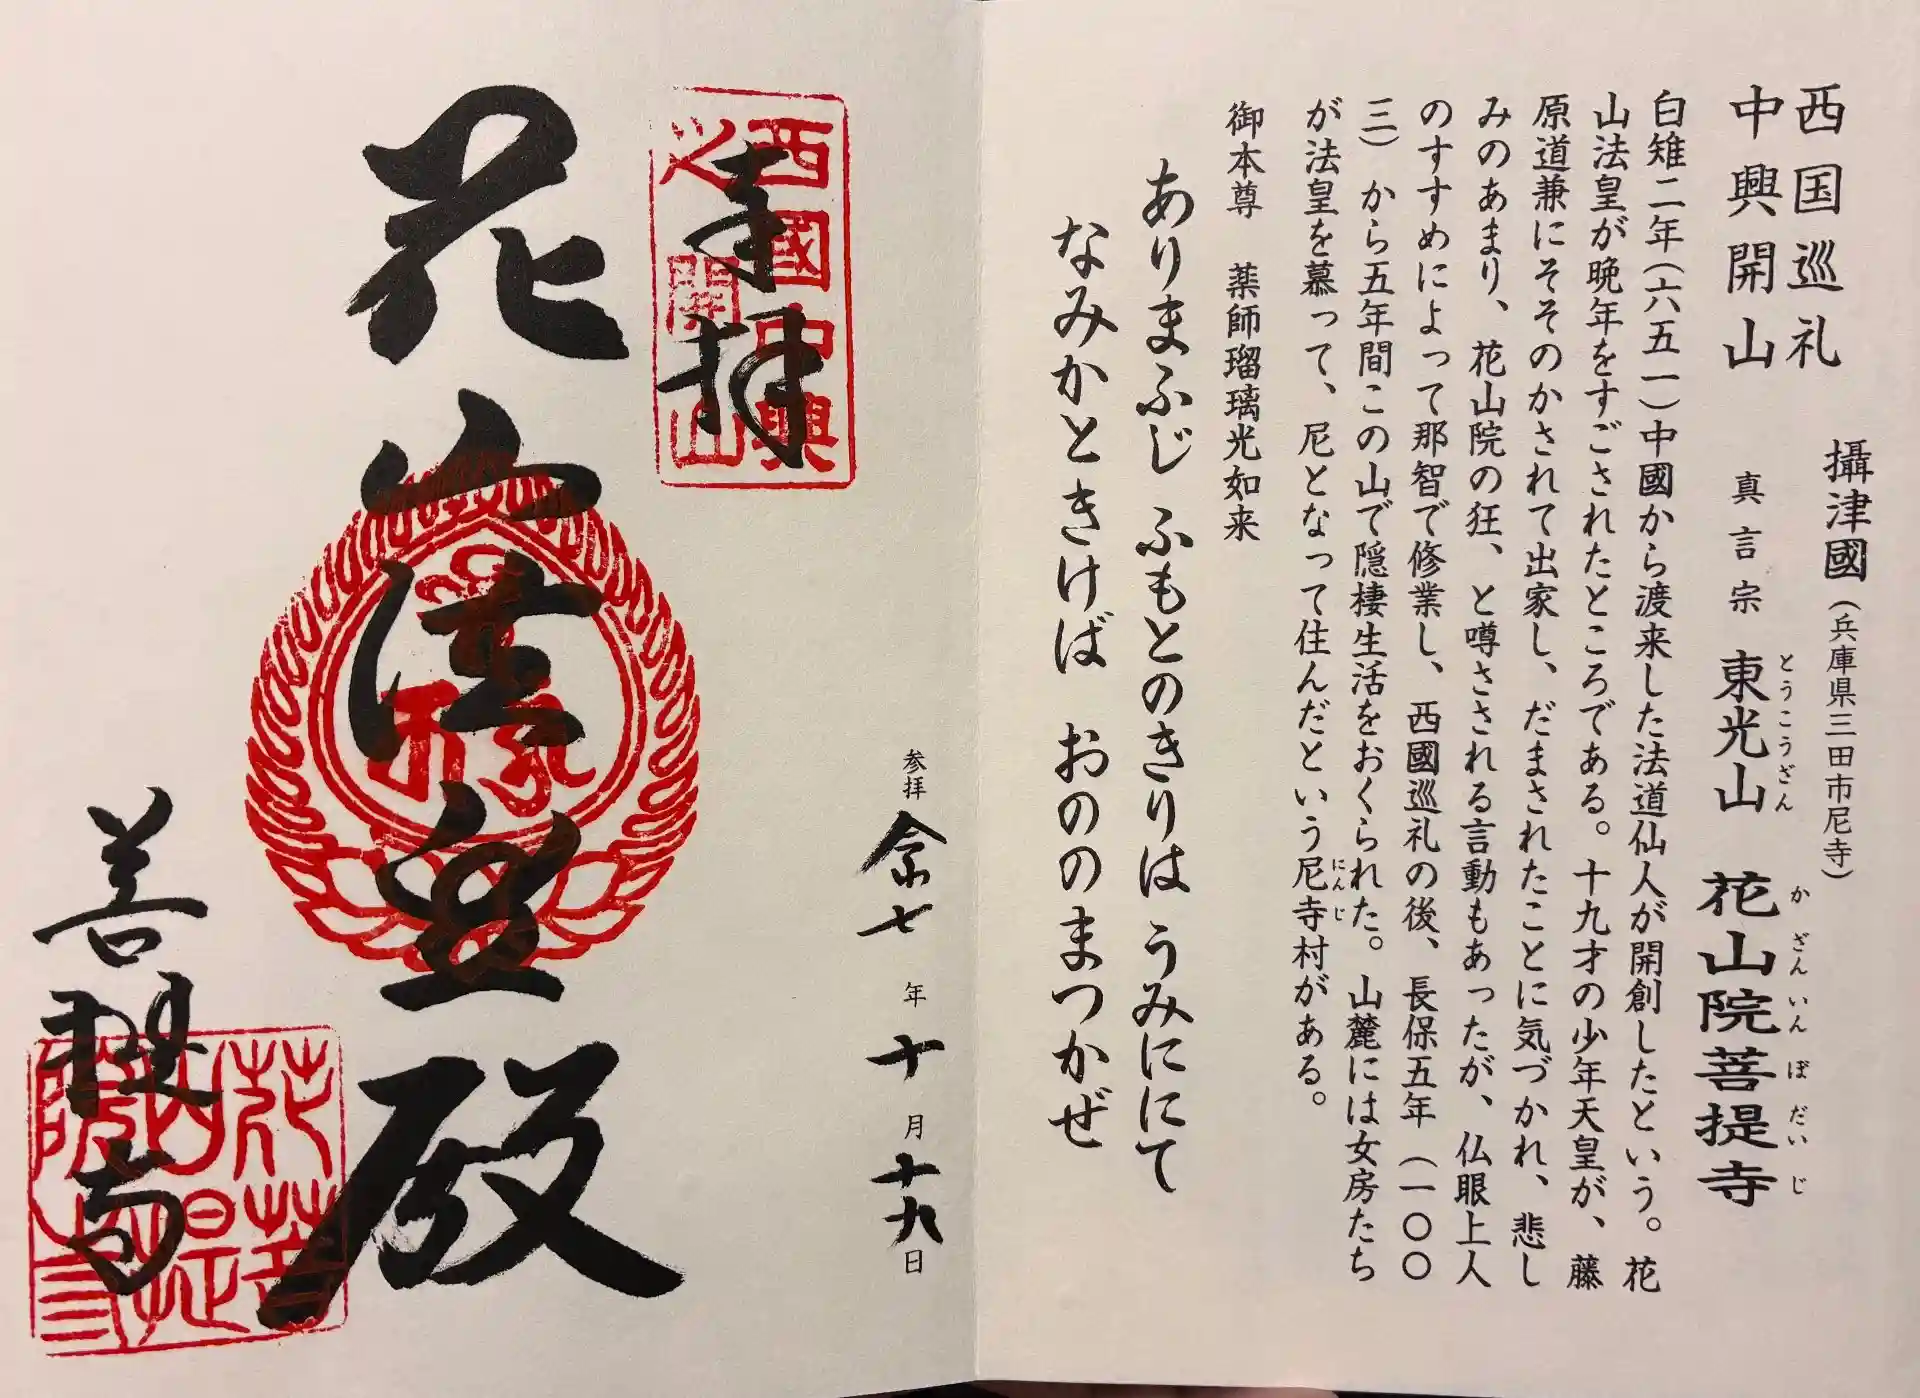 西国巡礼
中興開山
攝津國(兵庫県三田市尼寺)
真言宗 東光山 花山院菩提寺
とうこうざん かざんいんぼだいじ
白雉二年(六五一)中國から渡来した法道仙人が開創したという。花
山法皇が晩年をすごされたところである。十九才の少年天皇が、藤
原道兼にそそのかされて出家し、だまされたことに気づかれ、悲し
みのあまり、花山院の狂、と噂さされる言動もあったが、仏眼上人
のすすめによって那智で修業し、西國巡礼の後、長保五年(一〇〇
三)から五年間この山で隠棲生活をおくられた。山麓には女房たち
が法皇を慕って、尼となって住んだという尼寺村がある。
にんじ
御本尊 薬師瑠璃光如来
ありまふじ ふもとのきりは うみににて
なみかときけば おののまつかぜ
参拝 令七年十月十九日
奉拝
西國中興
之開山
花山法皇殿
菩提寺
花山院
菩提寺